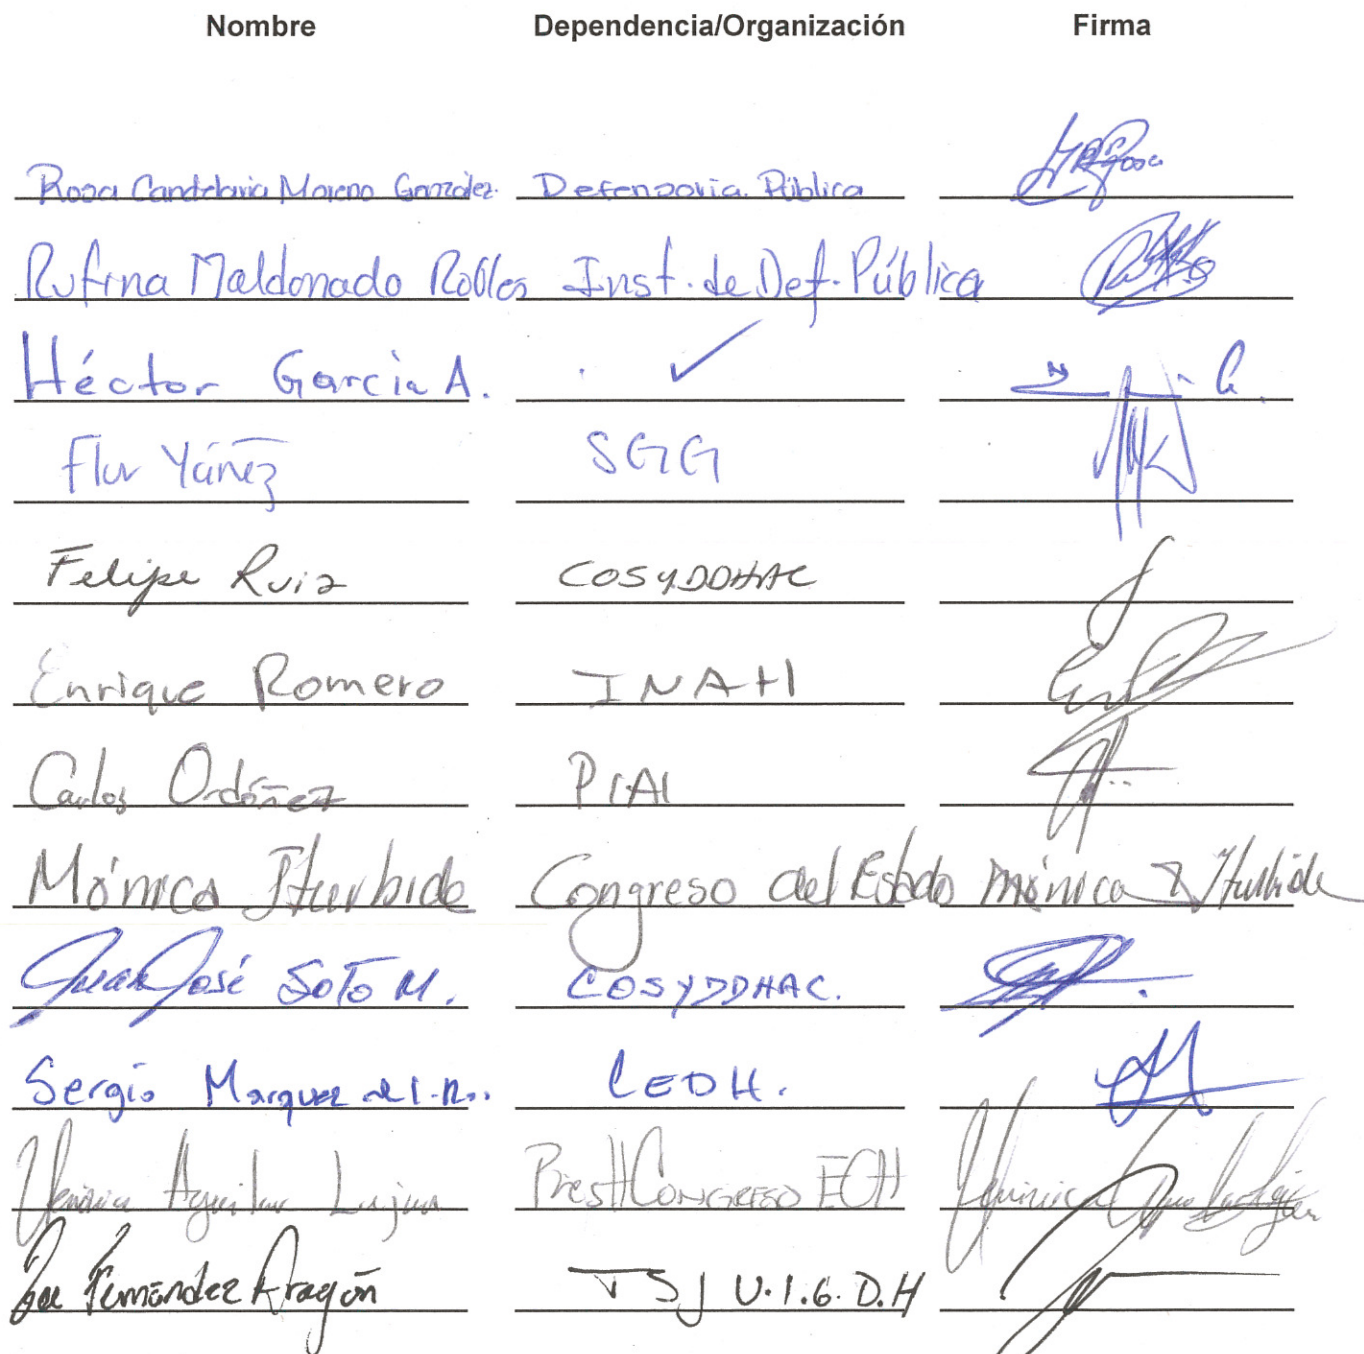 Nombre Dependencia/Organización Firma
Rosa Candelaria Moreno González. Defensoria Pública
Rufina Maldonado Robles Inst. de Def. Pública
Héctor García A. ✓
Flor Yáñez SGG
Felipe Ruiz COSYDDHAC
Enrique Romero INAH
Carlos Ordóñez PIAI
Mónica Iturbide Congreso del Estado Mónica Iturbide
Juan José Soto M. COSYDDHAC.
Sergio Marquez de l. R. CEDH.
Aguilar Lujan Congreso ECH
Fernández Aragón TSJ U.I.G.D.H